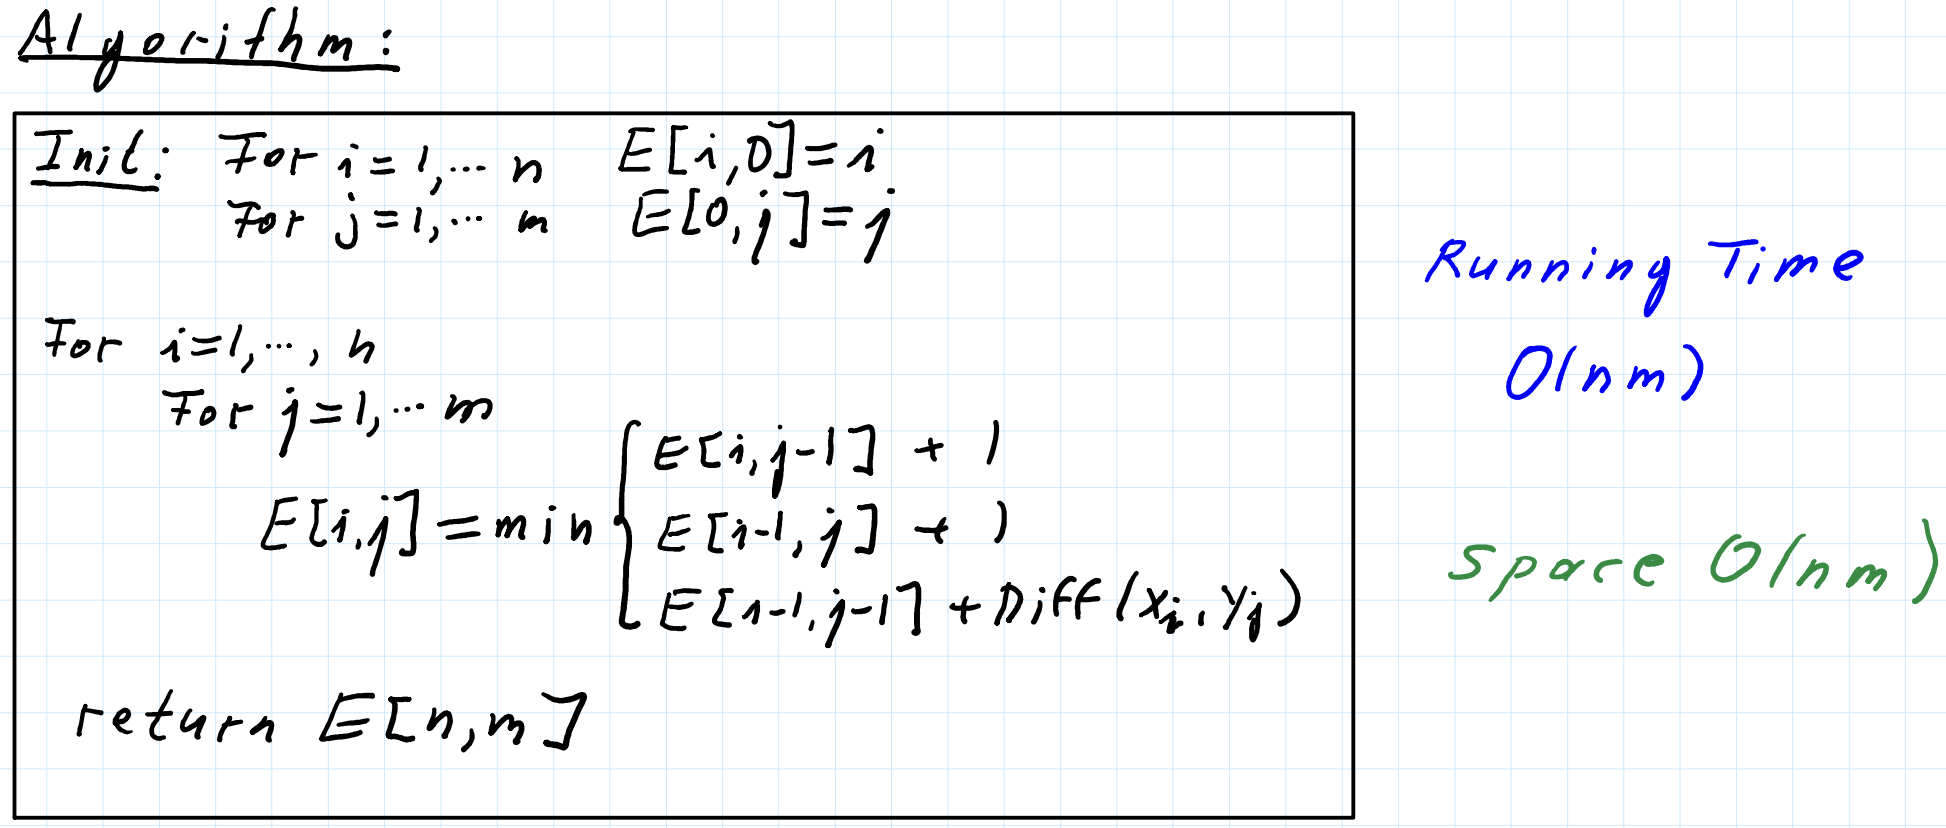 Algorithm:
Init: For i=1,... n E[i,0]=i
For j=1,... m E[0,j]=j
For i=1,..., n
For j=1,... m
E[i,j]=min { E[i,j-1] + 1
E[i-1,j] + 1
E[i-1,j-1] + Diff(xi,yj)
return E[n,m]
Running Time
O(nm)
space O(nm)